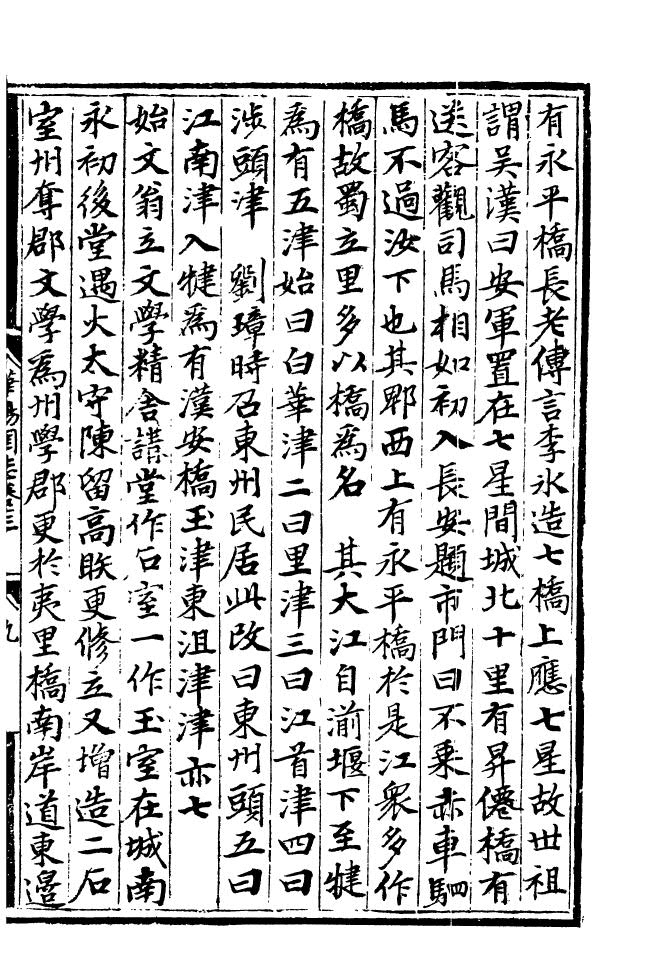 有永平橋長老傳言李冰造七橋上應七星故世祖
謂吴漢曰安軍置在七星間城北十里有昇僊橋有
送客觀司馬相如初入長安題市門曰不乗赤車駟
馬不過汝下也其郫西上有永平橋於是江衆多作
橋故蜀立里多以橋爲名　其大江自湔堰下至犍
爲有五津始曰白華津二曰里津三曰江首津四曰
渉頭津　劉璋時召東州民居此改曰東州頭五曰
江南津入犍爲有漢安橋玉津東沮津津亦七
始文翁立文學精舍講堂作石室一作玉室在城南
永初後堂遇火太守陳留高眹更修立又增造二石
室州奪郡文學爲州學郡更於夷里橋南岸道東邉
華陽國志卷三
九